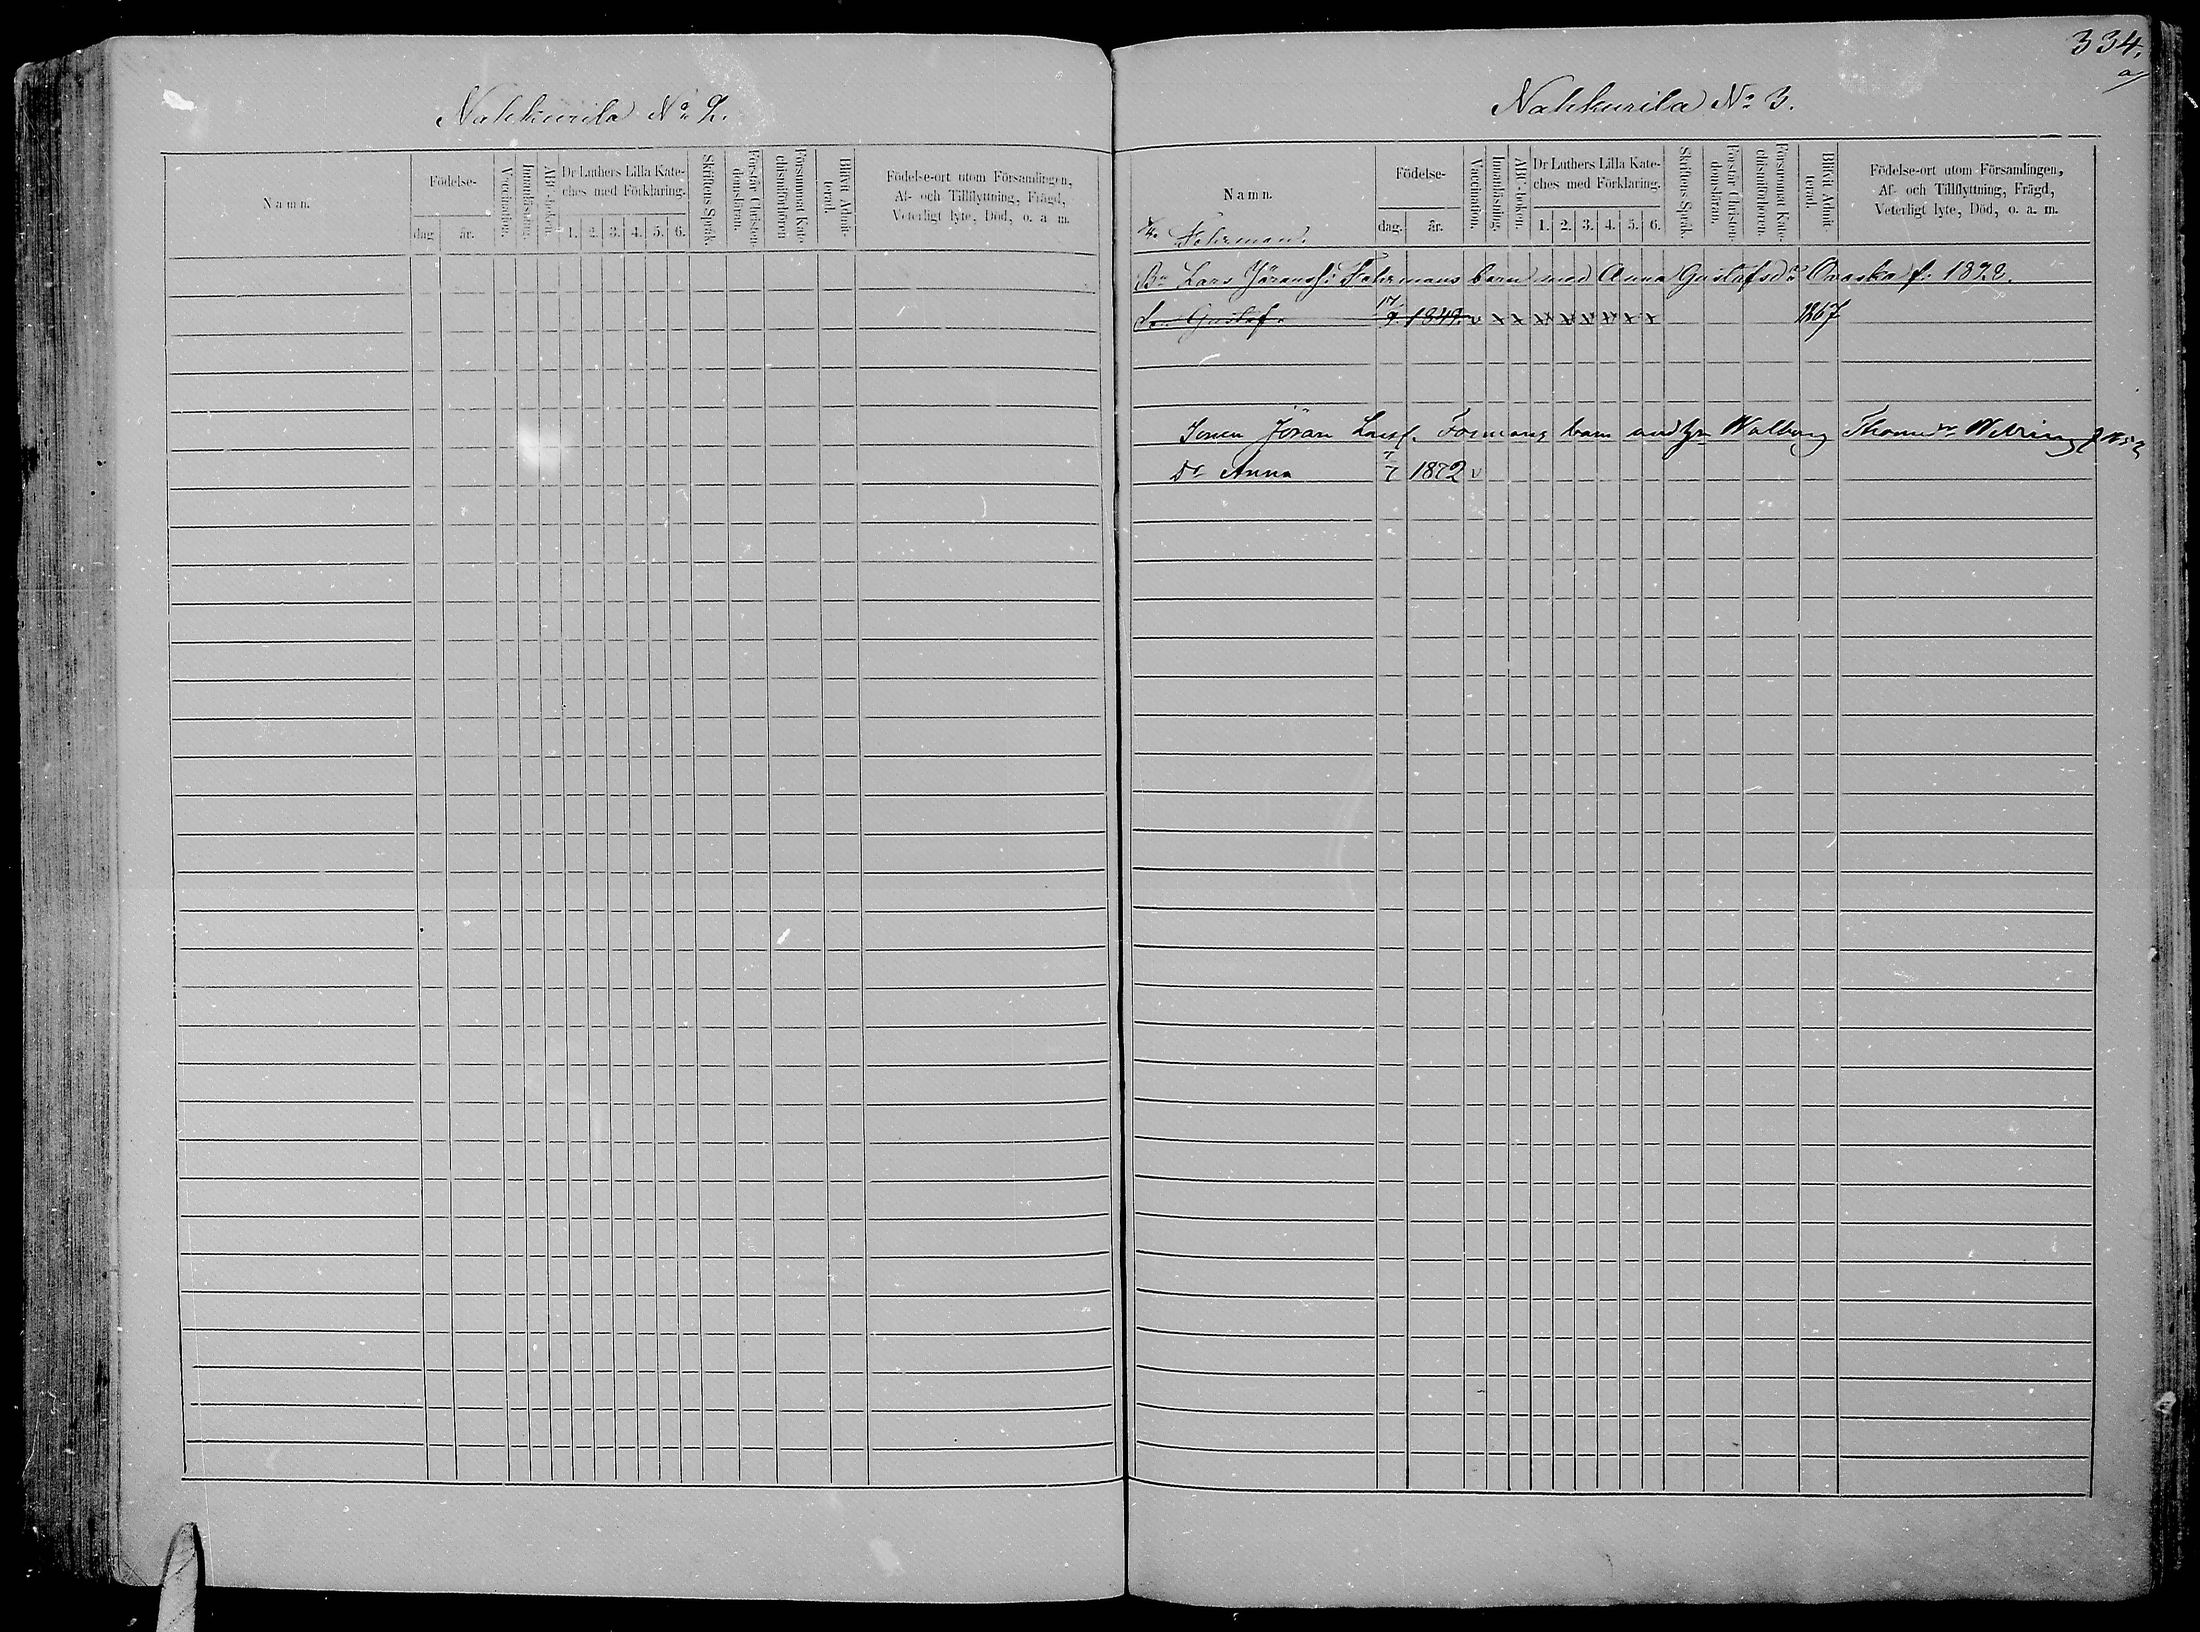 334.
a/
Nahkurila No 2.
Namn.
Födelse-
dag
år.
Vaccination.
Innanläsning.
ABC-boken.
Dr Luthers Lilla Kate-
ches med Förklaring.
1. 2. 3. 4. 5. 6.
Skriftens Språk.
Förstår Christen-
domsläran.
Försummat Kate-
chismiförhören
Blifvit Admit-
terad.
Födelse-ort utom Församlingen,
Af- och Tillflyttning, Frägd,
Veterligt lyte, Död, o. a. m.
Nahkurila No 3.
Namn.
Fahrman.
Födelse-
dag.
år.
Vaccination.
Innanläsning.
ABC-boken.
Dr Luthers Lilla Kate-
ches med Förklaring.
1. 2. 3. 4. 5. 6.
Skriftens Språk.
Förstår Christen-
domsläran.
Försummat Kate-
chismiförhören.
Blifvit Admit-
terad.
Födelse-ort utom Församlingen,
Af- och Tillflyttning, Frägd,
Veterligt lyte, Död, o. a. m.
Bn Lars Jöranss: Fahrmans barn med Anna Gustafsdr Oraska f: 1828.
So. Gustaf. 17/9. 1849. v x x x x x x x x 1867
Sonen Jöran Larss. Formans barn med hu Walborg Thomsdr
Dr Anna 7/7 1872 v